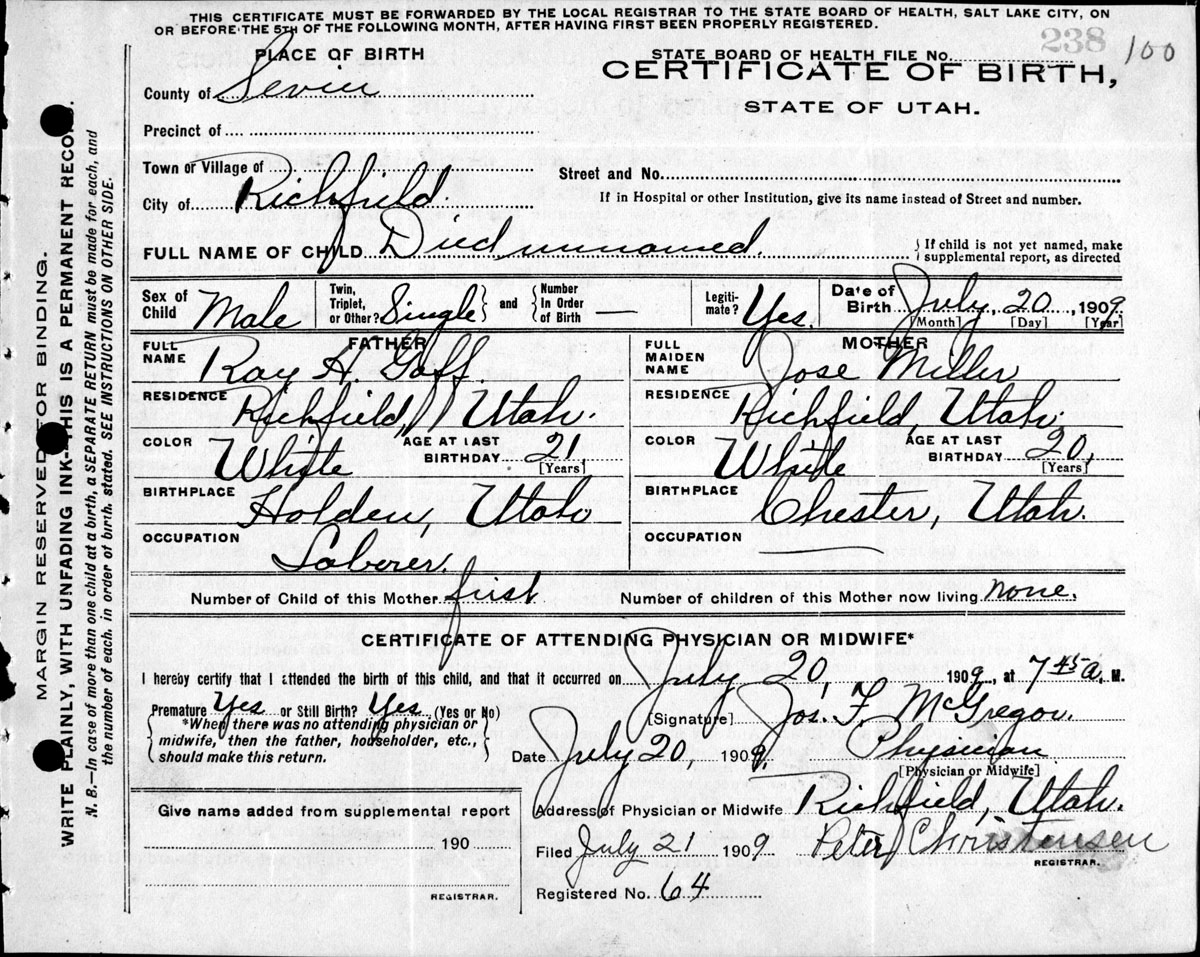 THIS CERTIFICATE MUST BE FORWARDED BY THE LOCAL REGISTRAR TO THE STATE BOARD OF HEALTH, SALT LAKE CITY, ON
OR BEFORE THE 5TH OF THE FOLLOWING MONTH, AFTER HAVING FIRST BEEN PROPERLY REGISTERED.
238 100
PLACE OF BIRTH
STATE BOARD OF HEALTH FILE No.
CERTIFICATE OF BIRTH,
STATE OF UTAH.
County of Sevier
Precinct of
Town or Village of
Street and No.
City of Richfield.
If in Hospital or other Institution, give its name instead of Street and number.
FULL NAME OF CHILD Died unnamed.
If child is not yet named, make
supplemental report, as directed
Sex of Child Male
Twin, Triplet, or Other? Single and Number In Order of Birth —
Legiti-mate? Yes.
Date of Birth July, 20, 1909.
[Month] [Day] [Year]
FATHER
FULL NAME Ray H. Goff.
RESIDENCE Richfield, Utah.
COLOR White AGE AT LAST BIRTHDAY 21 [Years]
BIRTHPLACE Holden, Utah
OCCUPATION Laborer.
MOTHER
FULL MAIDEN NAME Jose Miller
RESIDENCE Richfield, Utah.
COLOR White AGE AT LAST BIRTHDAY 20, [Years]
BIRTHPLACE Chester, Utah.
OCCUPATION
Number of Child of this Mother first Number of children of this Mother now living none.
CERTIFICATE OF ATTENDING PHYSICIAN OR MIDWIFE*
I hereby certify that I attended the birth of this child, and that it occurred on July 20, 1909, at 7 45 a, M.
Premature Yes or Still Birth? Yes (Yes or No)
*When there was no attending physician or
midwife, then the father, householder, etc.,
should make this return.
[Signature] Jos. F. McGregor.
Date July 20, 1909. Physician
[Physician or Midwife]
Give name added from supplemental report
190
REGISTRAR.
Address of Physician or Midwife Richfield, Utah.
Filed July 21 1909 Peter Christensen
REGISTRAR.
Registered No. 64
MARGIN RESERVED FOR BINDING.
WRITE PLAINLY, WITH UNFADING INK—THIS IS A PERMANENT RECORD.
N. B.—In case of more than one child at a birth, a SEPARATE RETURN must be made for each, and
the number of each, in order of birth, stated. SEE INSTRUCTIONS ON OTHER SIDE.